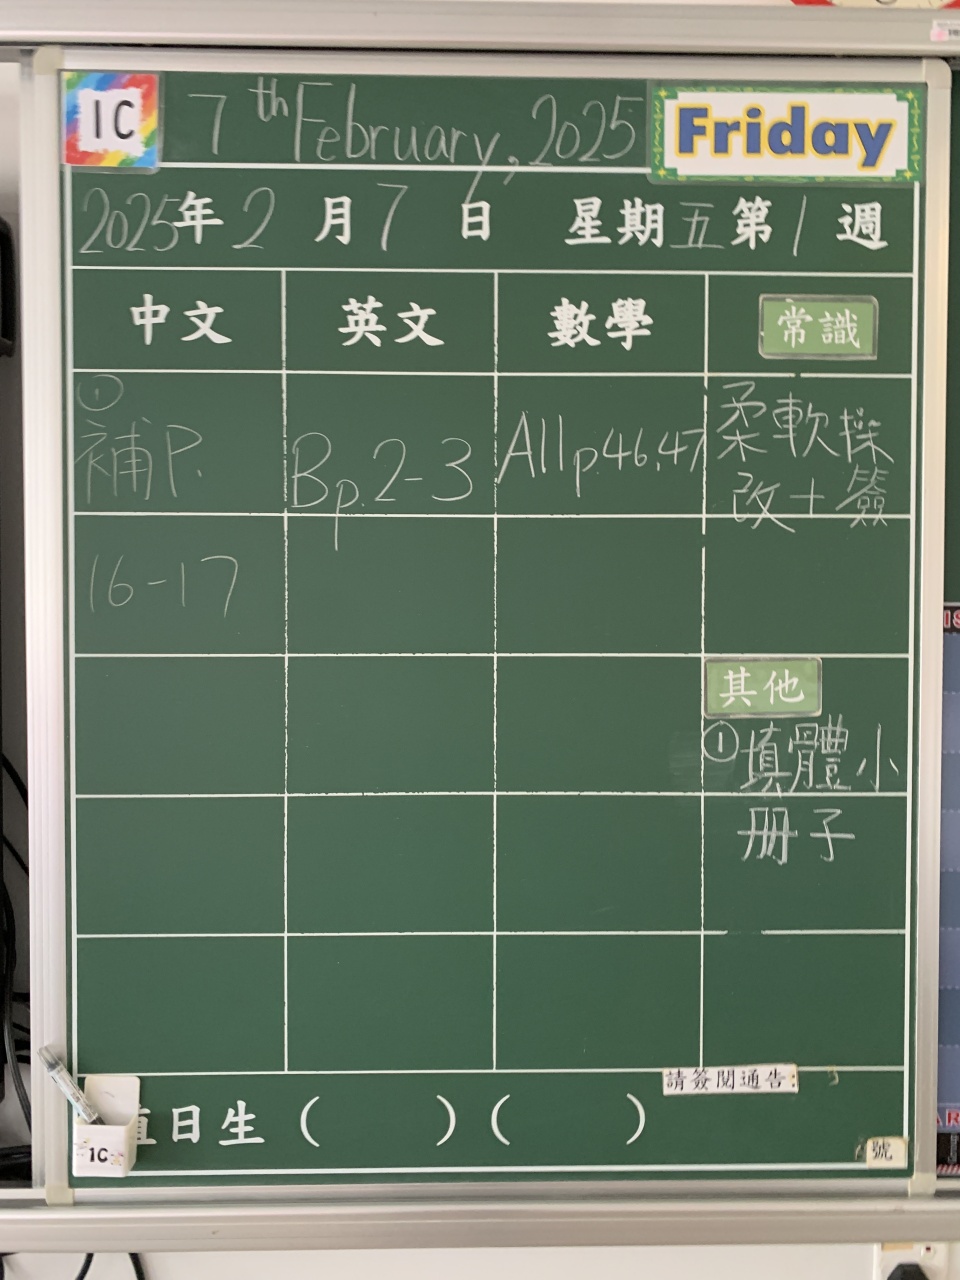 1C 7th February, 2025 Friday
2025年2月7日 星期五第1週
中文 英文 數學 常識
①
補P.
16-17
Bp.2-3
A11p.46,47
柔軟操
改+簽
其他
①填體小
册子
請簽閱通告:
日生 ( ) ( )
1C
號